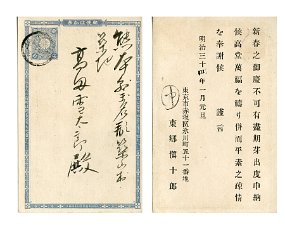 新春之御慶不可有盡期芽出度申納
候高堂萬福を賜り併而平素之疎情
を奉謝候 謹言
明治三十四年一月元旦
東京市赤坂區氷川町五十一番地
東郷慎十郎
熊本
高田雪太郎殿